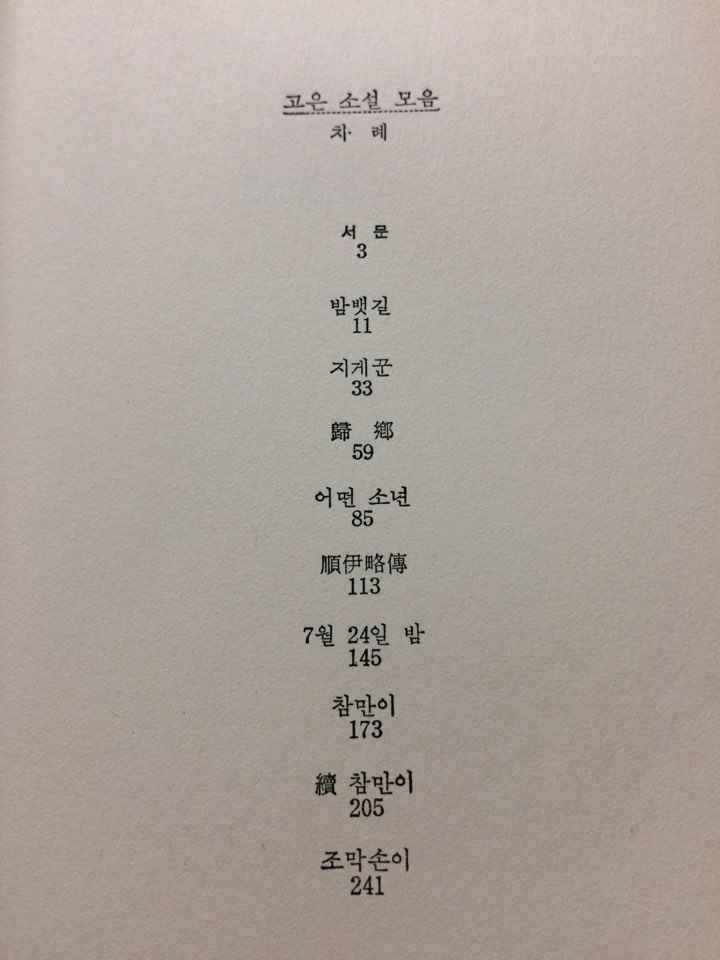 고은 소설 모음
차 례
서 문
3
밤뱃길
11
지게꾼
33
歸 鄕
59
어떤 소년
85
順伊略傳
113
7월 24일 밤
145
참만이
173
續 참만이
205
조막손이
241